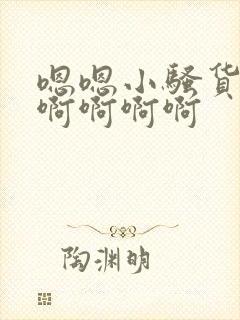 嗯嗯小骚货
啊啊啊啊
陶渊明